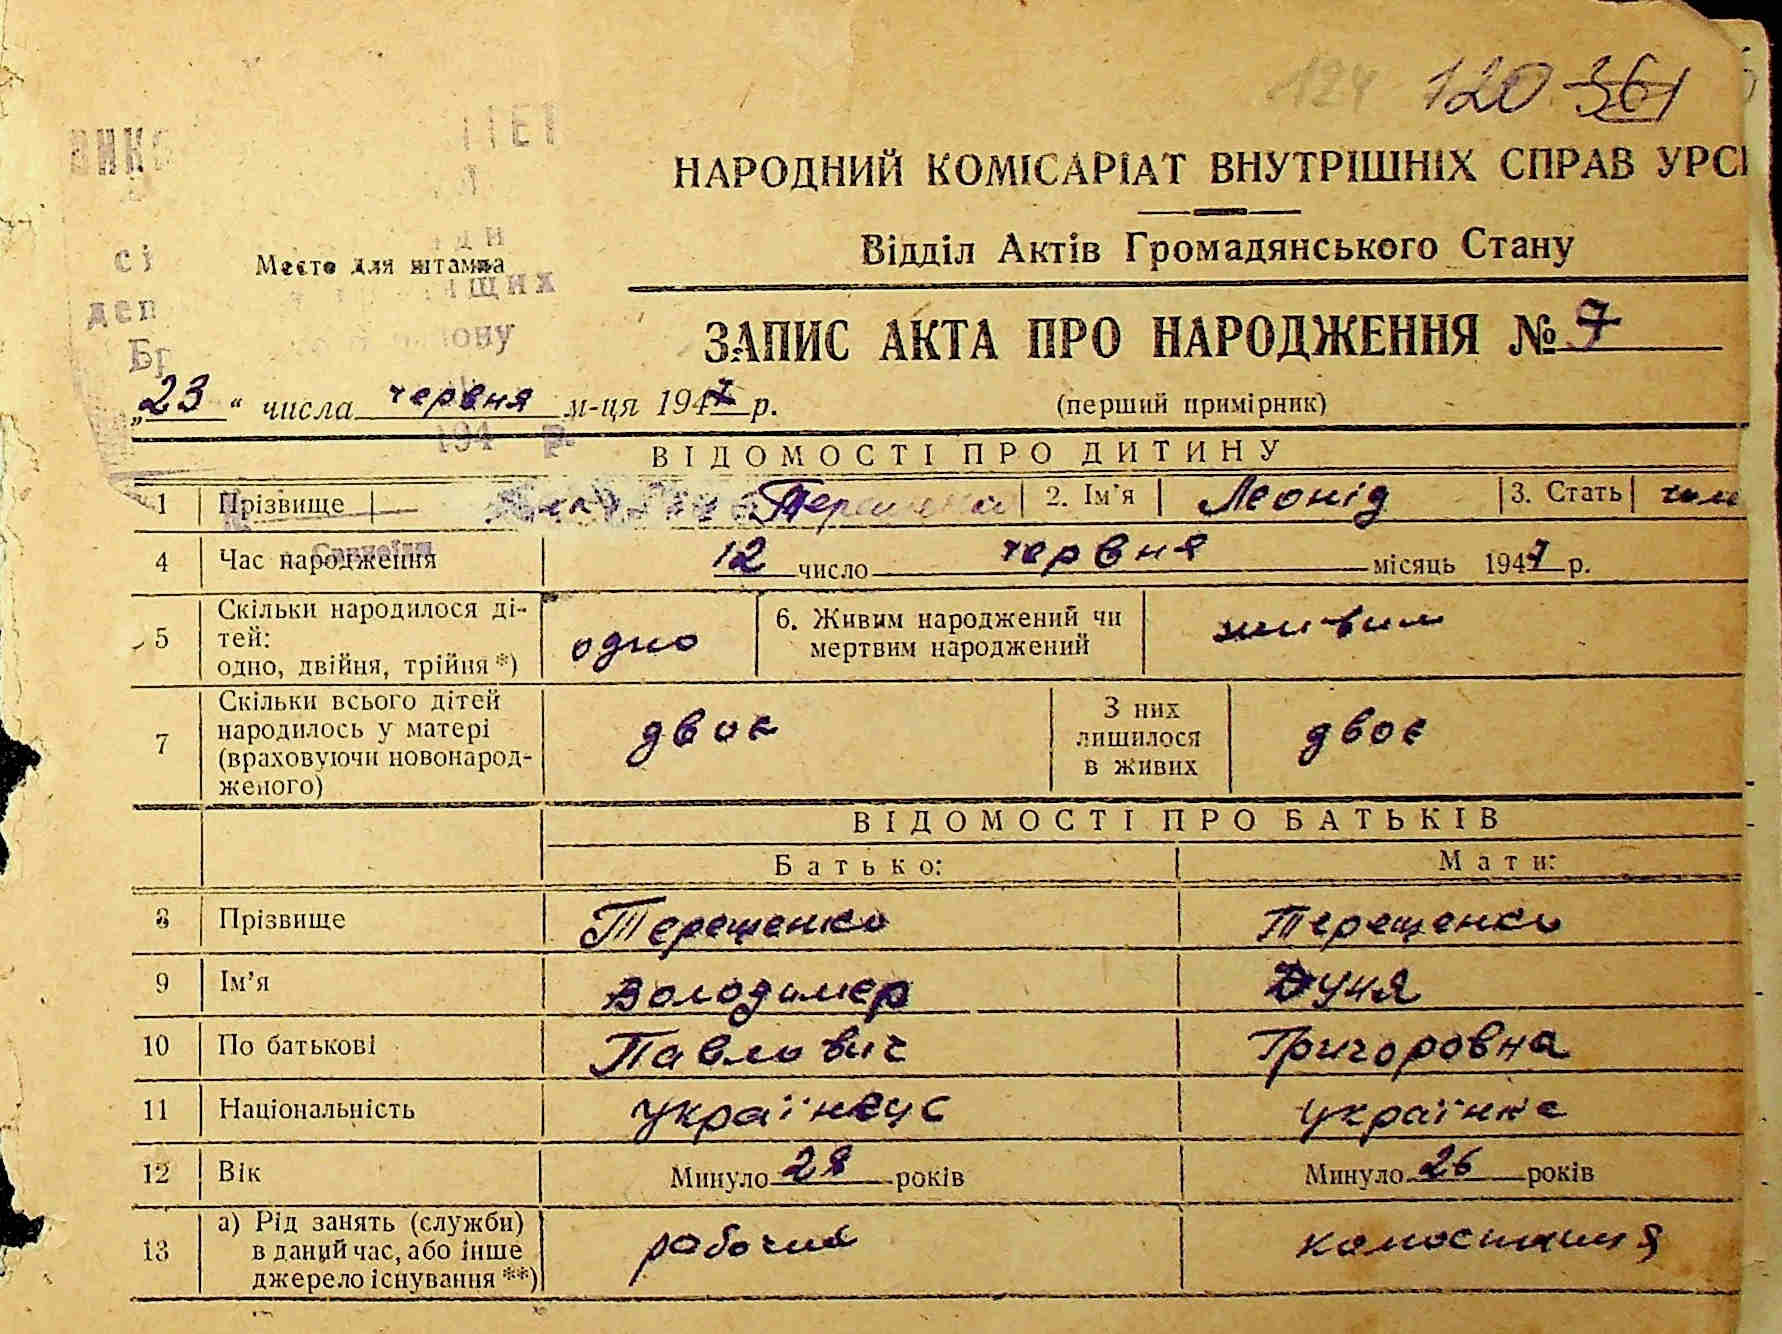 124 120 361
НАРОДНИЙ КОМІСАРІАТ ВНУТРІШНІХ СПРАВ УРС
Відділ Актів Громадянського Стану
Место для штампа
ЗАПИС АКТА ПРО НАРОДЖЕННЯ № 7
„23“ числа червня м-ця 1947 р.
(перший примірник)
194 р.
ВІДОМОСТІ ПРО ДИТИНУ
1 Прізвище Терещенко 2. Ім'я Леонід 3. Стать чол
4 Час народження 12 число червня місяць 1947 р.
5 Скільки народилося ді-
тей:
одно, двійня, трійня *) одно 6. Живим народжений чи
мертвим народжений живим
7 Скільки всього дітей
народилось у матері
(враховуючи новонарод-
женого) двоє З них
лишилося
в живих двоє
ВІДОМОСТІ ПРО БАТЬКІВ
Батько: Мати:
8 Прізвище Терещенко Терещенко
9 Ім'я Володимер Дуня
10 По батькові Павлович Григоровна
11 Національність українец українка
12 Вік Минуло 28 років Минуло 26 років
13 а) Рід занять (служби)
в даний час, або інше
джерело існування **) рабочий